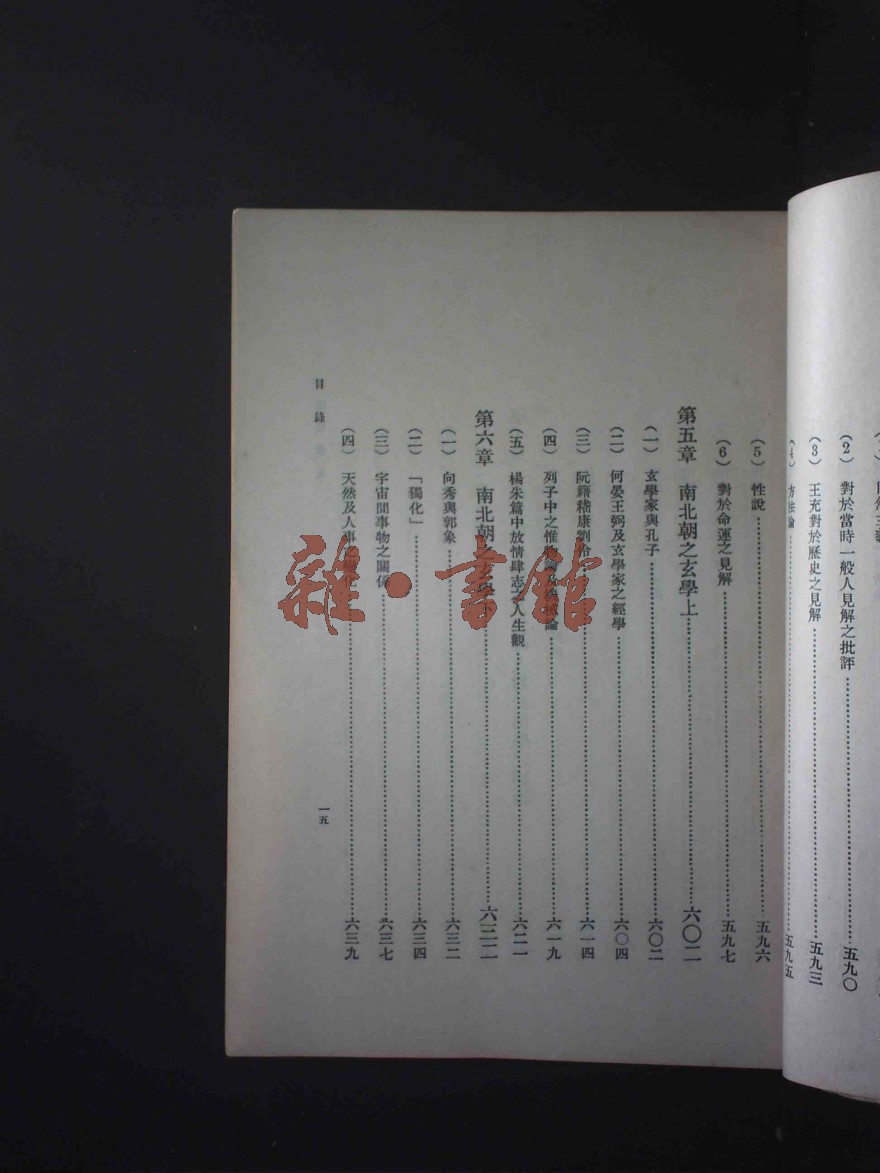 (2) 對於當時一般人見解之批評……五九〇
(3) 王充對於歷史之見解……五九三
(4) 方法論……五九五
(5) 性說……五九六
(6) 對於命運之見解……五九七
第五章 南北朝之玄學上……六〇二
(一) 玄學家與孔子……六〇二
(二) 何晏王弼及玄學家之經學……六〇四
(三) 阮籍嵇康劉伶……六一四
(四) 列子中之惟物論及機械論……六一九
(五) 楊朱篇中放情肆志之人生觀……六二一
第六章 南北朝之玄學下……六三二
(一) 向秀與郭象……六三二
(二) 「獨化」……六三四
(三) 宇宙間事物之關係……六三七
(四) 天然及人事之變化……六三九
目錄
一五
雜·書館